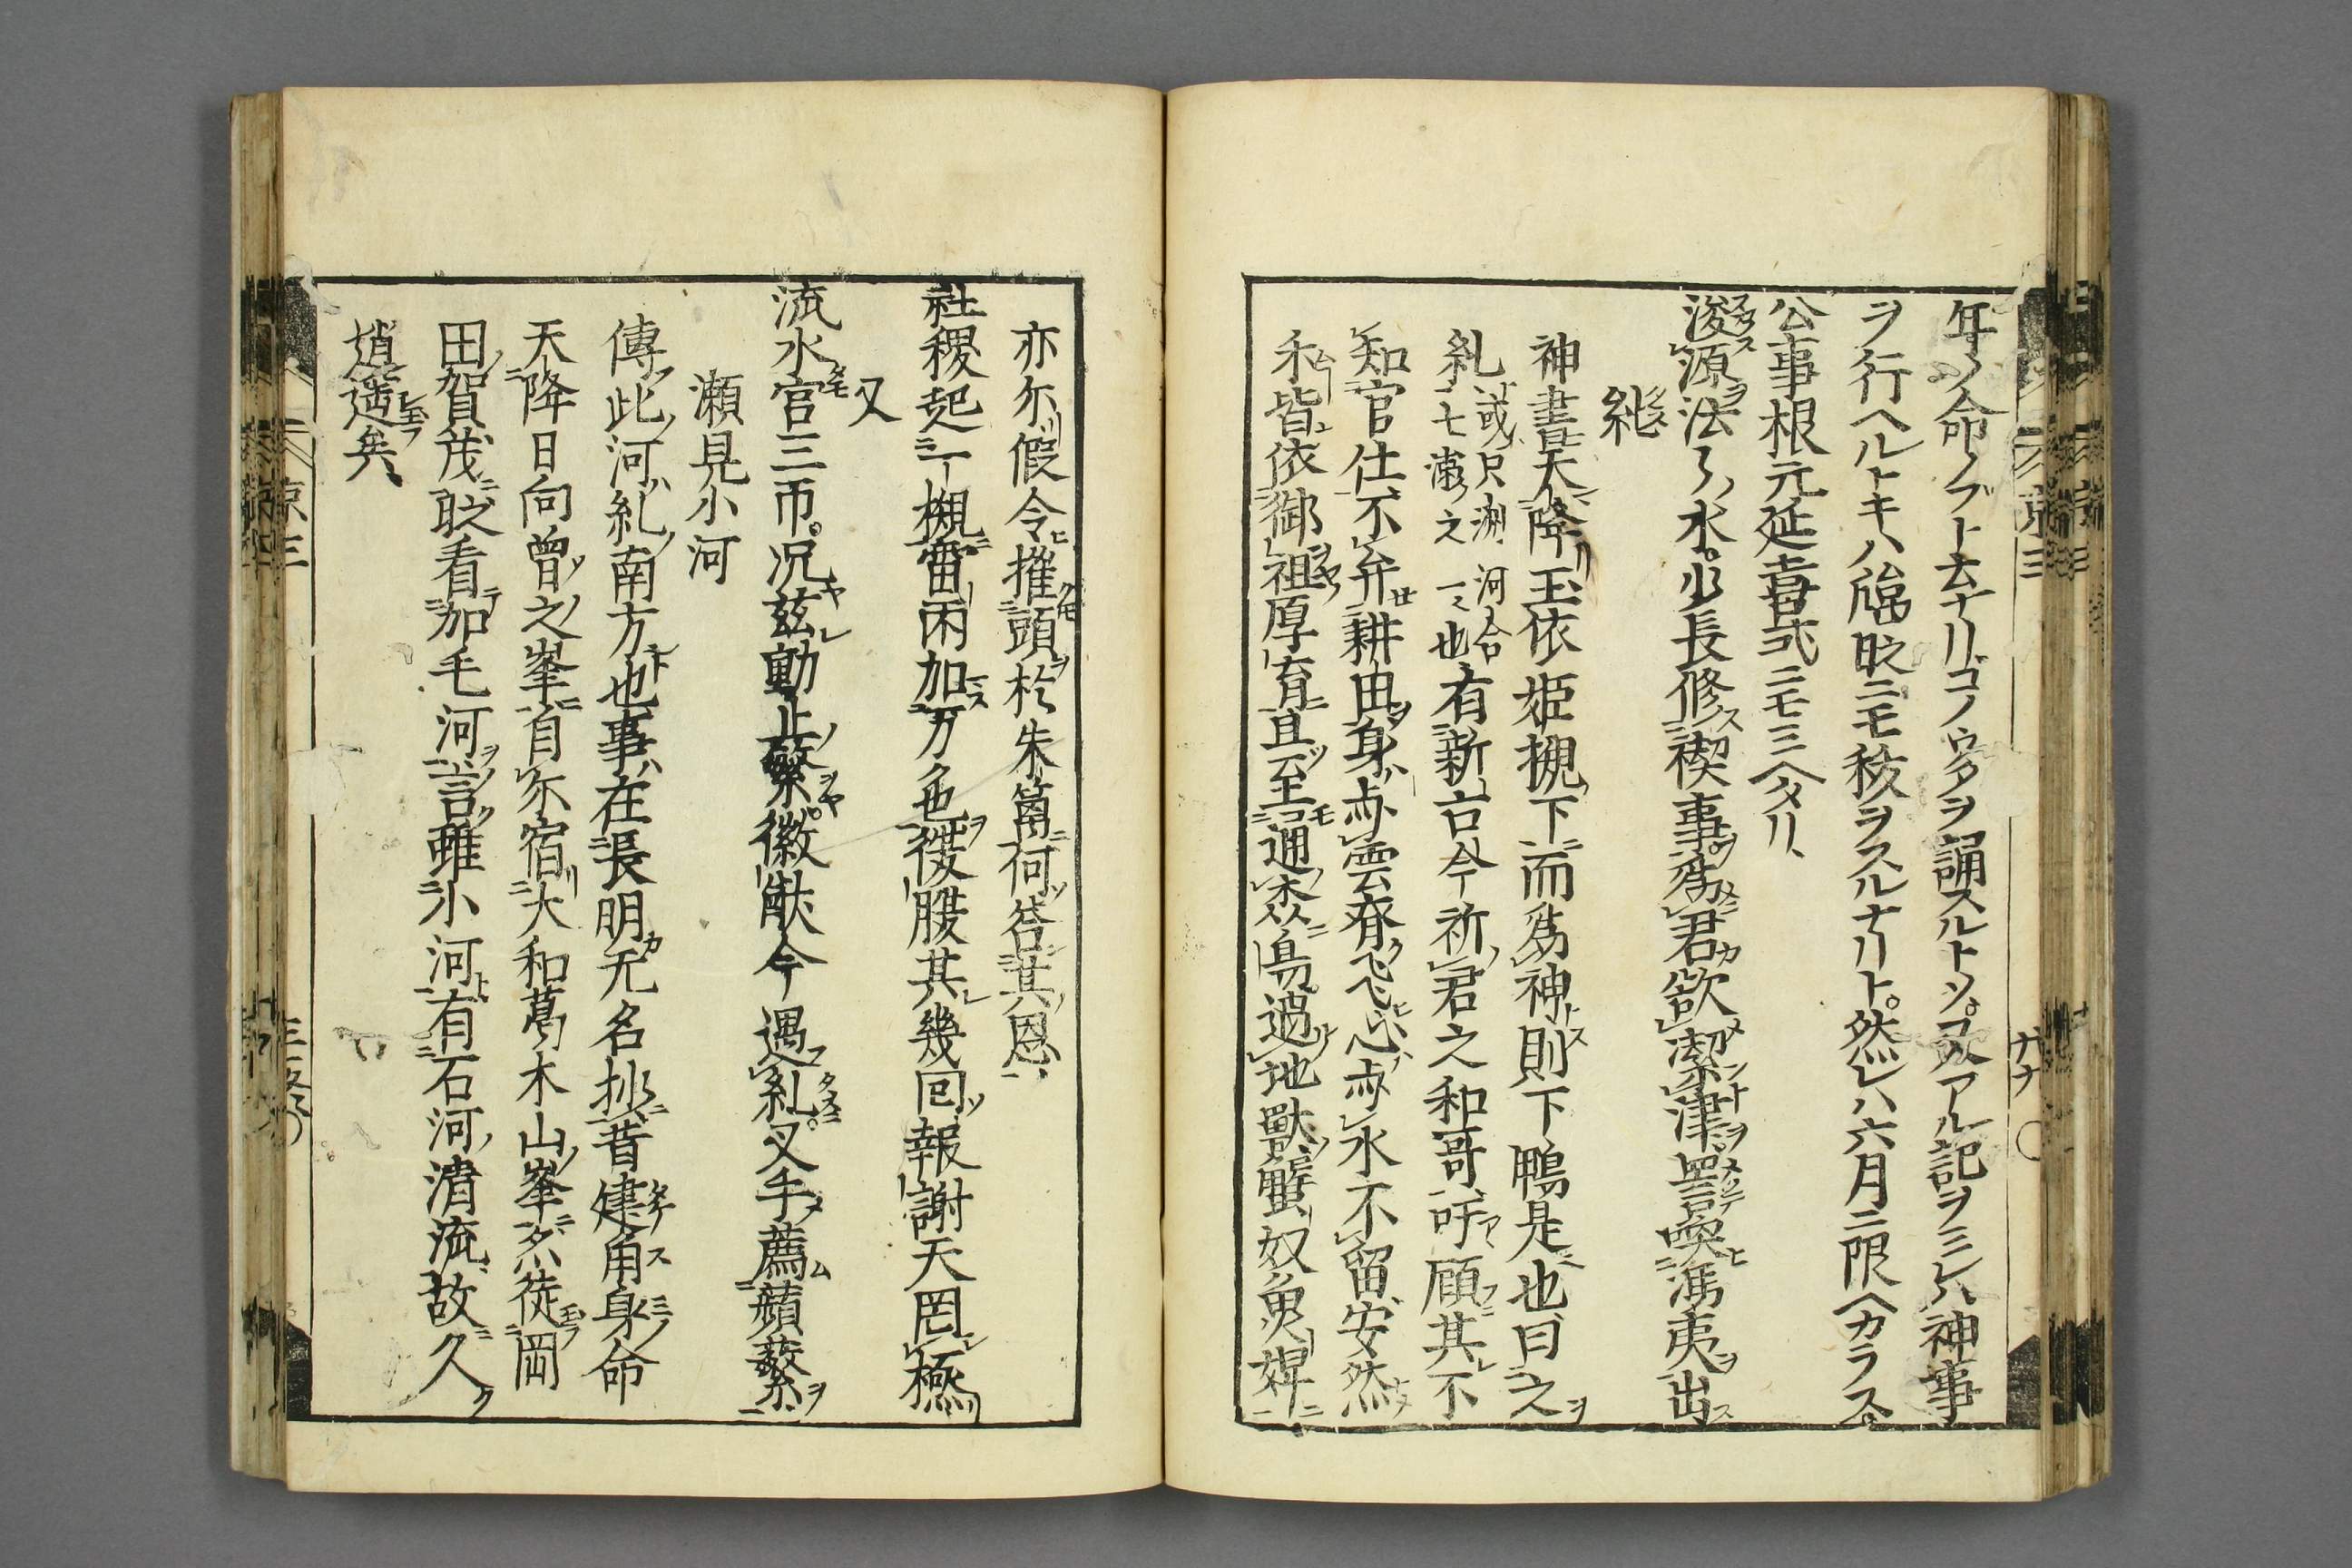 年ノ命ノブト云ナリ゙コノウタヲ誦スルトソ。又アル記ヲミレハ神事
ヲ行ヘルトキハ臨時ニモ祓ヲスルナリト。然レハ六月ニ限ヘカラス。
公事根元延喜式ニモミヘタリ、
浚源法乃水。少長修禊事為君欲潔津罟誤馮夷出
糺
神書天降玉依姫槻下而為神則下鴨是也曰之
糺
或只渕河合
七瀬之一也
有新古今祈君之和哥吁顧其不
知官仕不弁耕田身亦雲脊飛心亦水不留安然
禾皆依御祖厚育且至通
過地獣蟹奴魚婢
亦尓假令摧頭於朱篤何答其恩
社稷起一槻雷雨加万色
其幾回報謝天罔極
又
流水官三帀。况茲動止繁。徽猷今遇糺。叉手薦蘋蘩
瀬見小河
傳此河糺南方也事在長明无名抄昔建角身命
天降日向曽之峯自尓宿大和葛木山峯
徒岡
田賀茂時看加毛河言雖小河有石河清流故久
逍遥矣